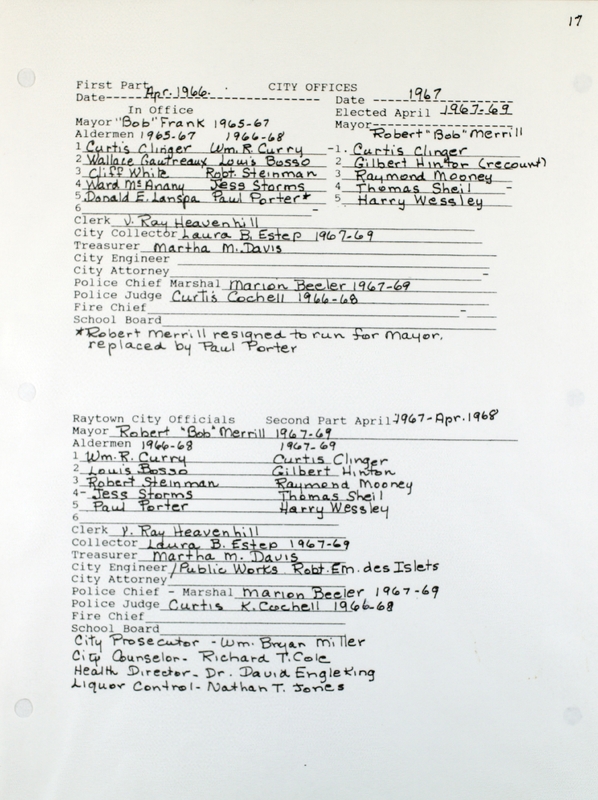 17
First Part Apr. 1966. CITY OFFICES 1967
Date Date
In Office Elected April 1967-69
Mayor "Bob" Frank 1965-67 Mayor Robert "Bob" Merrill
Aldermen 1965-67 1966-68
1 Curtis Clinger Wm. R. Curry 1. Curtis Clinger
2 Wallace Gautreaux Louis Bosso 2 Gilbert Hinton (recount)
3 Cliff White Robt. Steinman 3 Raymond Mooney
4 Ward McAnany Jess Storms 4 Thomas Sheil
5 Donald E. Lanspa Paul Porter* 5 Harry Wessley
6
Clerk V. Ray Heavenhill
City Collector Laura B. Estep 1967-69
Treasurer Martha M. Davis
City Engineer
City Attorney
Police Chief Marshal Marion Beeler 1967-69
Police Judge Curtis Cochell 1966-68
Fire Chief
School Board
*Robert Merrill resigned to run for Mayor,
replaced by Paul Porter
Raytown City Officials Second Part April 1967-Apr. 1968
Mayor Robert "Bob" Merrill 1967-69
Aldermen 1966-68 1967-69
1 Wm. R. Curry Curtis Clinger
2 Louis Bosso Gilbert Hinton
3 Robert Steinman Raymond Mooney
4- Jess Storms Thomas Sheil
5 Paul Porter Harry Wessley
6
Clerk V. Ray Heavenhill
Collector Laura B. Estep 1967-69
Treasurer Martha M. Davis
City Engineer/Public Works Robt. Em. des Islets
City Attorney
Police Chief - Marshal Marion Beeler 1967-69
Police Judge Curtis K. Cochell 1966-68
Fire Chief
School Board
City Prosecutor - Wm. Bryan Miller
City Counselor- Richard T. Cole
Health Director- Dr. David Engleking
Liquor Control- Nathan T. Jones